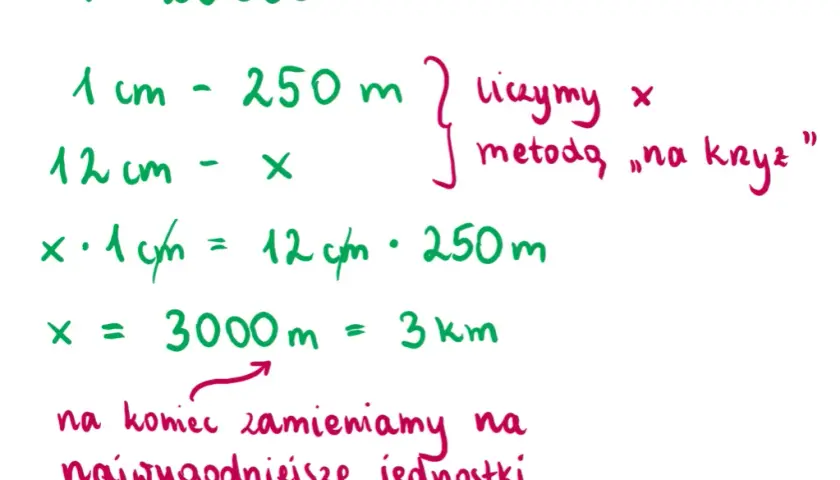 1 cm - 250 m
12 cm - x
liczymy x
metodą „na krzyż”
x · 1 cm = 12 cm · 250 m
x = 3000 m = 3 km
na koniec zamieniamy na
najwygodniejsze jednostki